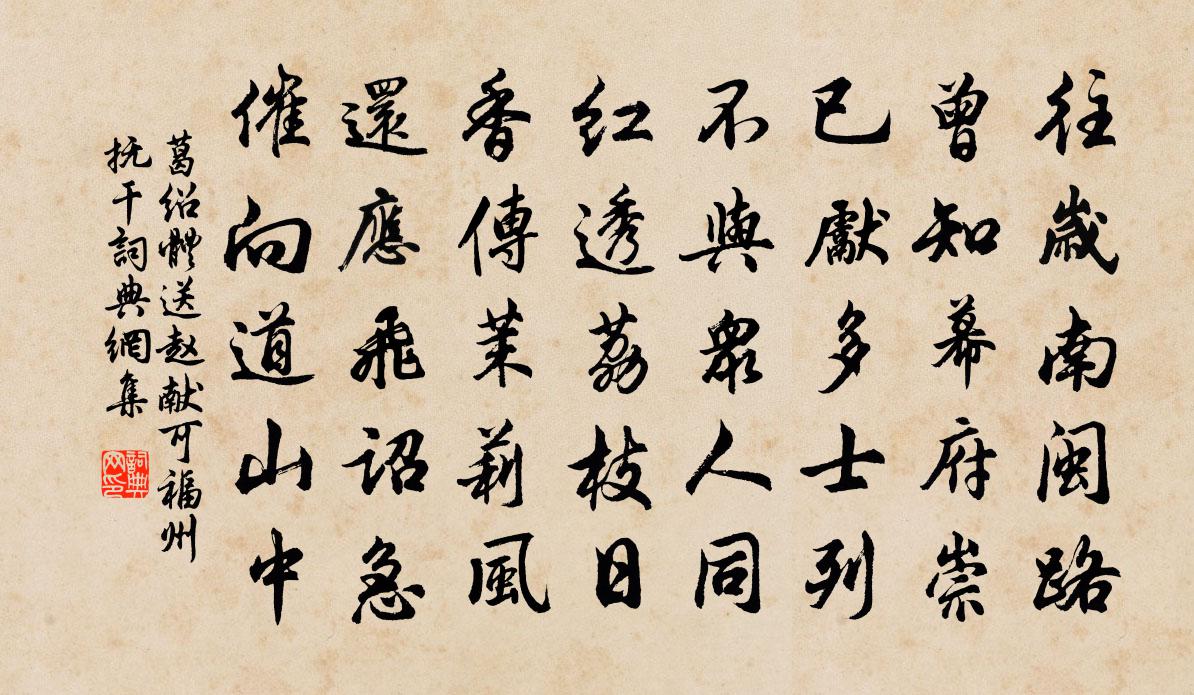 往歲南閩路
曾知幕府崇
已獻多士列
不與眾人同
红透荔枝日
香傳茉莉風
還應飛詔急
催向道山中
葛绍體送赵献可福州
抚干詞典網集
詞典网印